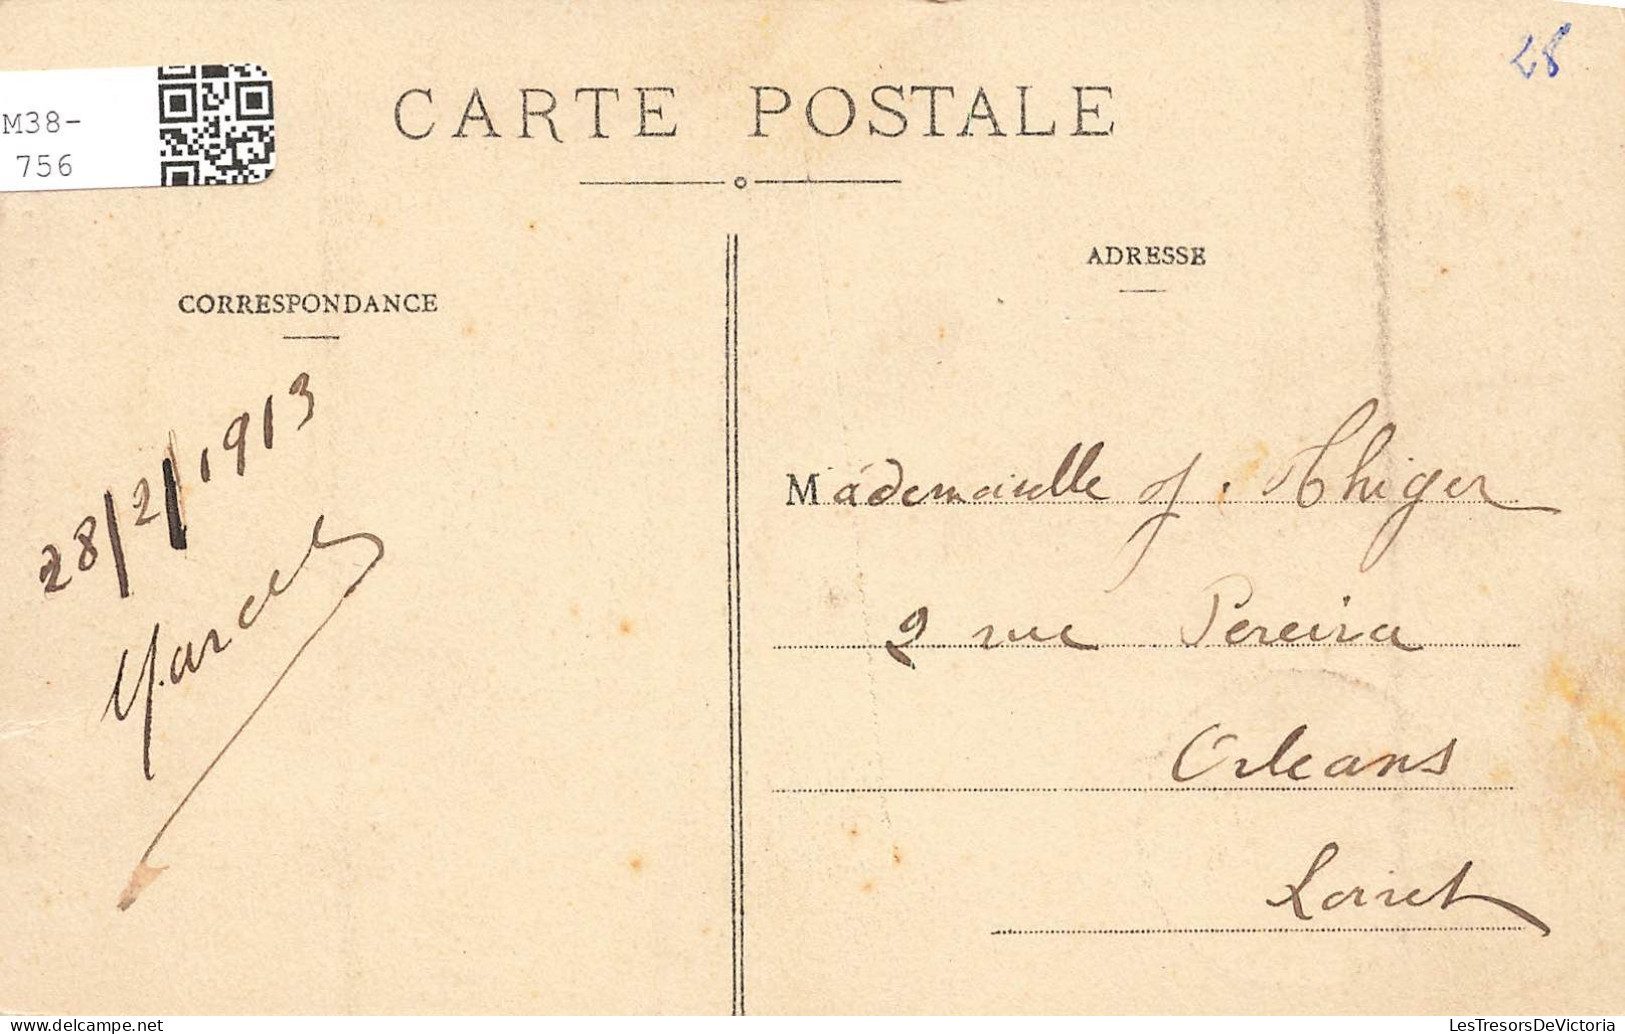 28
M38-
756
CARTE POSTALE
CORRESPONDANCE
28/2/1913
Marcel
ADRESSE
Mademoiselle J. Thiger
2 rue Pereira
Orleans
Loiret
delcampe.net
LesTresorsDeVictoria